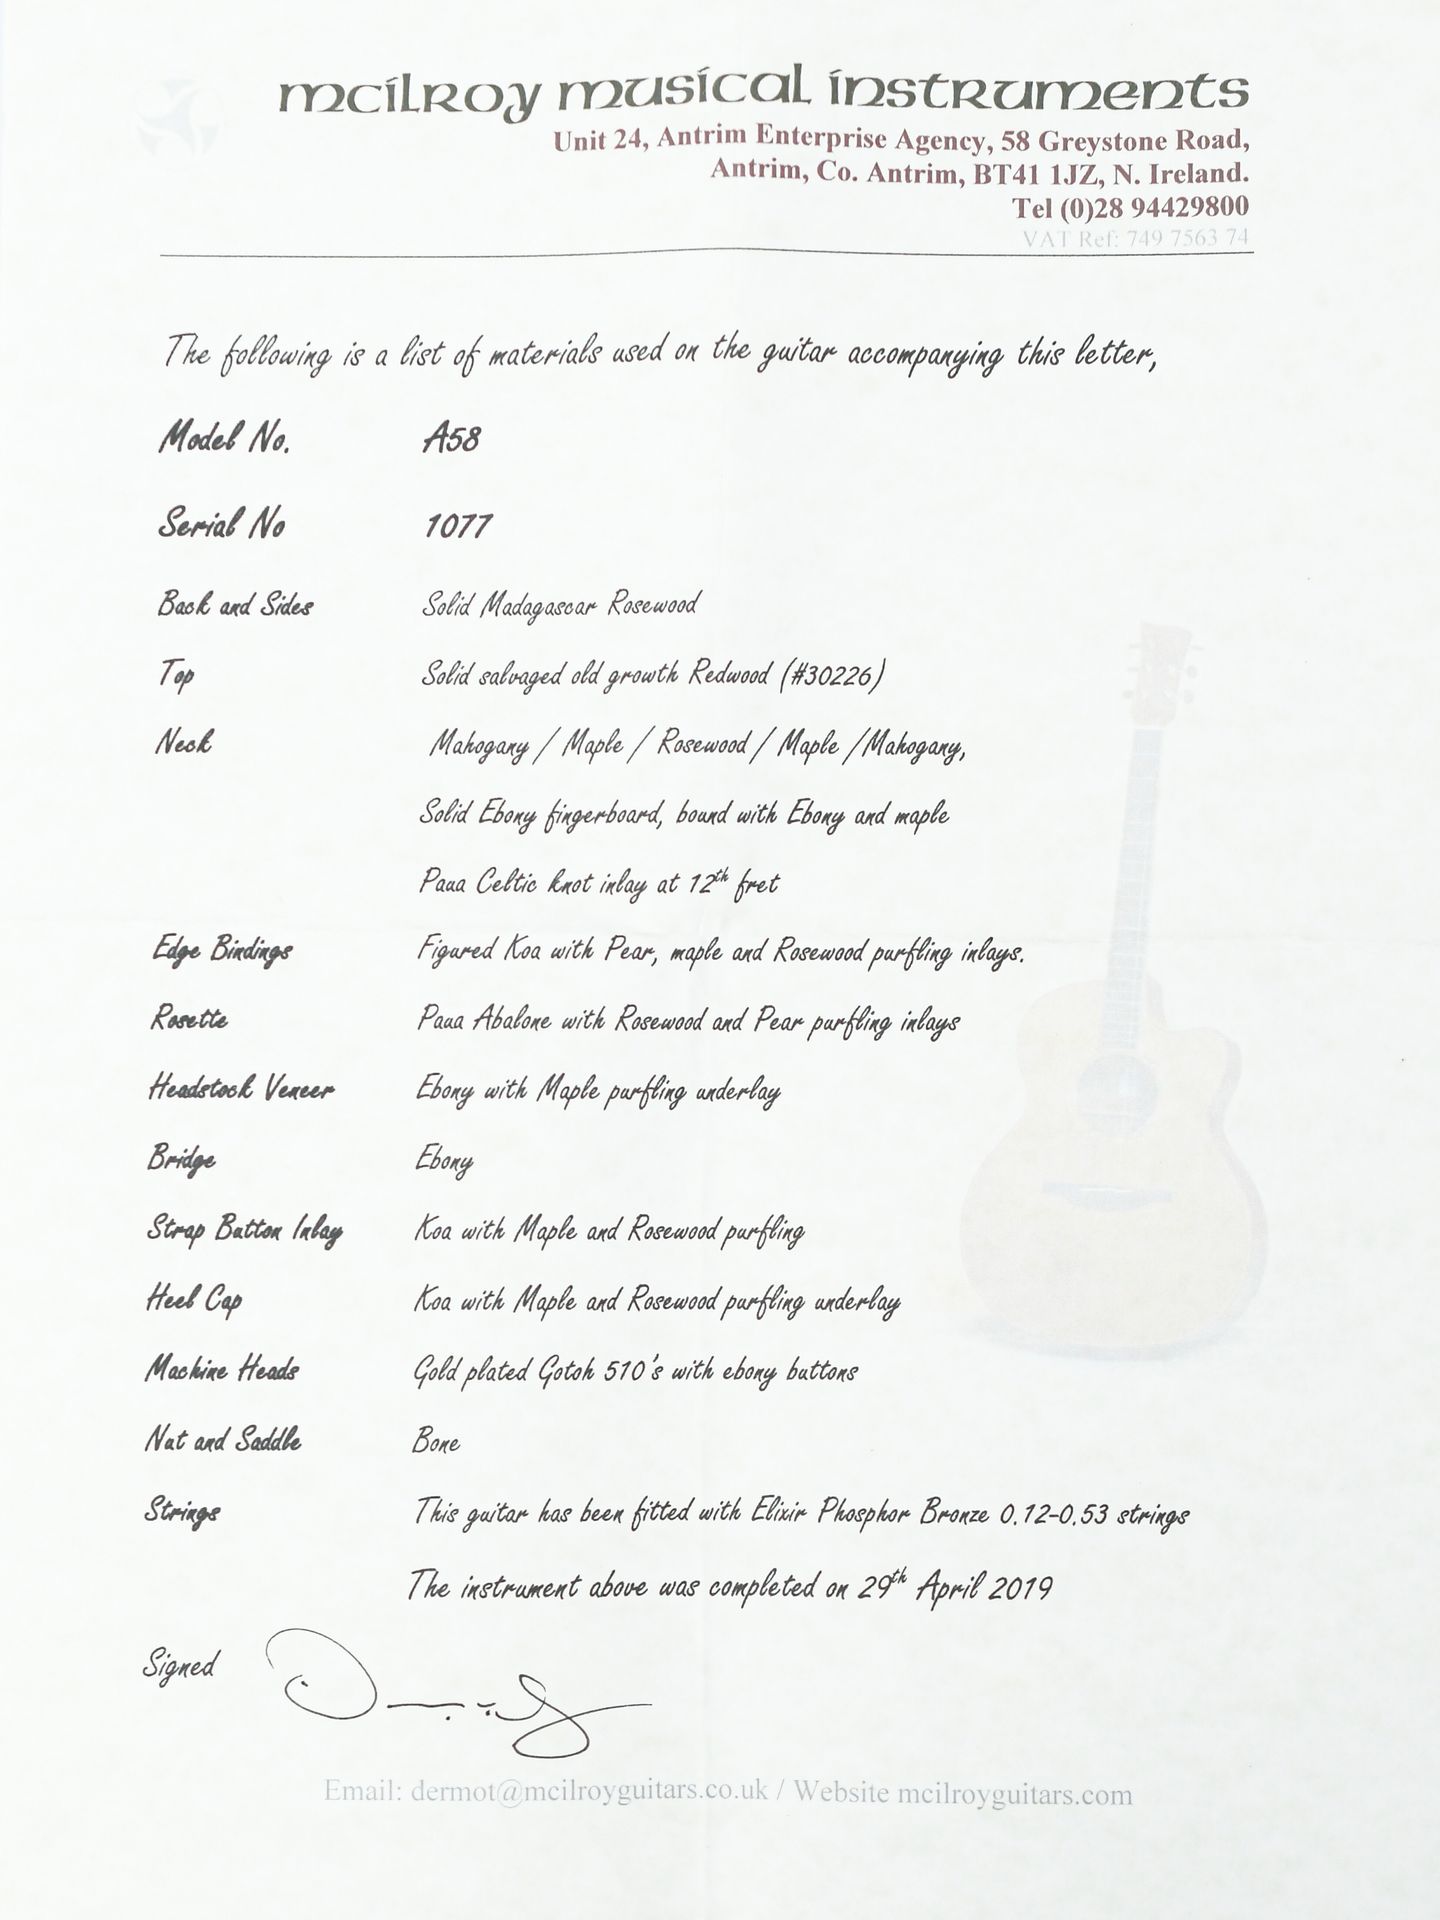 mcilroy musical instruments
Unit 24, Antrim Enterprise Agency, 58 Greystone Road,
Antrim, Co. Antrim, BT41 1JZ, N. Ireland.
Tel (0)28 94429800
VAT Ref: 749 7563 74
The following is a list of materials used on the guitar accompanying this letter,
Model No. A58
Serial No 1077
Back and Sides Solid Madagascar Rosewood
Top Solid salvaged old growth Redwood (#30226)
Neck Mahogany / Maple / Rosewood / Maple /Mahogany,
Solid Ebony fingerboard, bound with Ebony and maple
Paua Celtic knot inlay at 12th fret
Edge Bindings Figured Koa with Pear, maple and Rosewood purfling inlays.
Rosette Paua Abalone with Rosewood and Pear purfling inlays
Headstock Veneer Ebony with Maple purfling underlay
Bridge Ebony
Strap Button Inlay Koa with Maple and Rosewood purfling
Heel Cap Koa with Maple and Rosewood purfling underlay
Machine Heads Gold plated Gotoh 510's with ebony buttons
Nut and Saddle Bone
Strings This guitar has been fitted with Elixir Phosphor Bronze 0.12-0.53 strings
The instrument above was completed on 29th April 2019
Signed
Email: dermot@mcilroyguitars.co.uk / Website mcilroyguitars.com